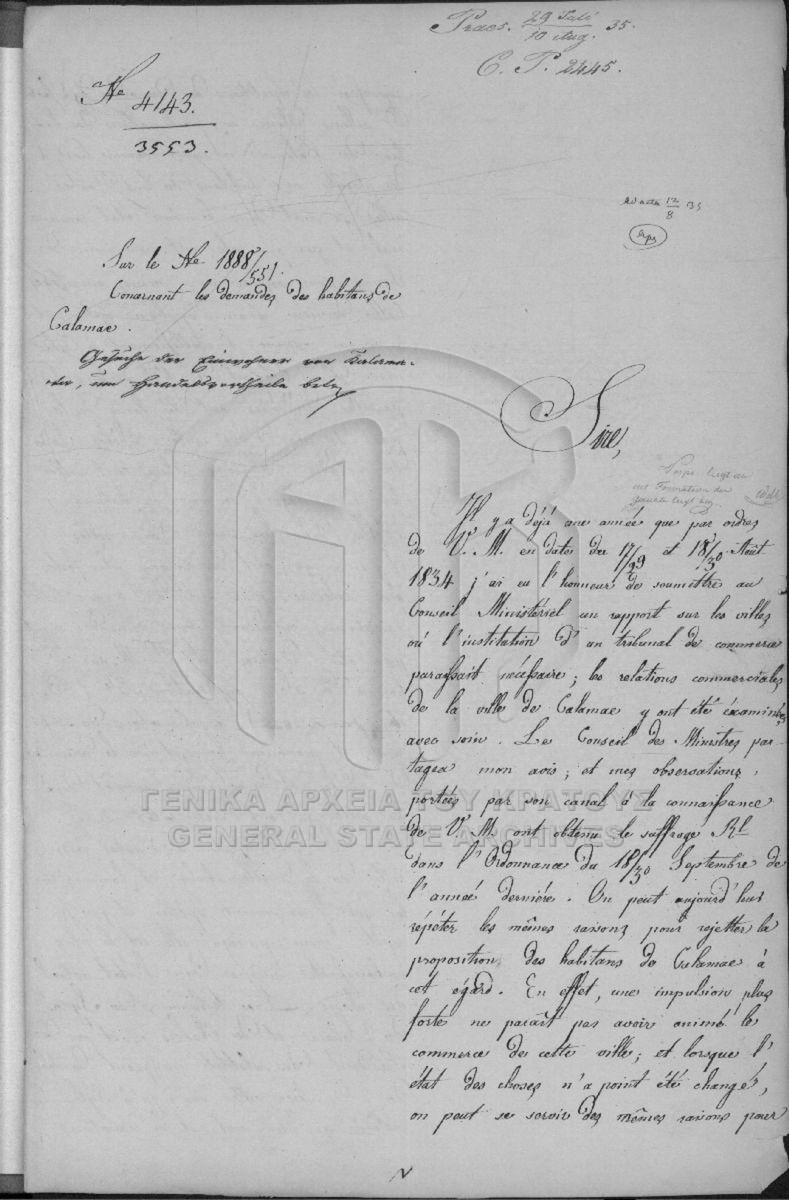 Praes. 29 Juli / 10 Aug. 35.
C. P. 2445.
No 4143.
3553.
Ad acta 12/8 35
Sur le No 1888/551.
Concernant les demandes des habitans de
Calamae.
Gesuche der Einwohner von Kalama-
um Handelsvortheile betr.
Sire,
Il y a déjà une année que par ordres
de V. M. en dates du 17/29 et 18/30 Août
1834 j'ai eu l'honneur de soumettre au
Conseil Ministériel un rapport sur les villes
où l'institution d'un tribunal de commerce
paraissait nécessaire; les relations commerciales
de la ville de Calamae y ont été examinées
avec soin. Le Conseil des Ministres par-
tagea mon avis; et mes observations,
portées par son canal à la connaissance
de V. M. ont obtenu le suffrage Rl
dans l'Ordonnance du 18/30 Septembre de
l'anneé dernière. On peut aujourd'hui
répéter les mêmes raisons pour rejetter la
proposition des habitans de Calamae à
cet égard. En effet, une impulsion plus
forte ne paraît pas avoir animé le
commerce de cette ville; et lorsque l'
état des choses n'a point été changé,
on peut se servir des mêmes raisons pour
ΓΕΝΙΚΑ ΑΡΧΕΙΑ ΤΟΥ ΚΡΑΤΟΥΣ
GENERAL STATE ARCHIVES